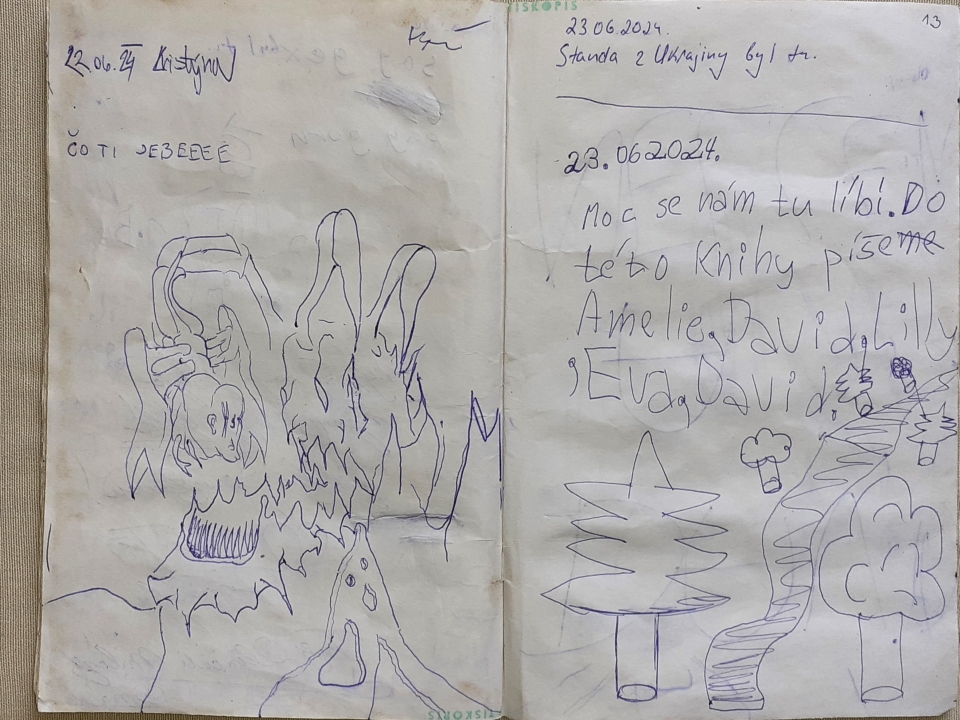 22.06.24 Kristýna
ČO TI JEBEEEE
TISKOPIS
TISKOPIS
13
23 06.2024.
Standa z Ukrajiny byl tu.
23.062024.
Moc se nám tu líbí. Do
této Knihy píšeme
Amelie, David, Lilly
, Eva, David.